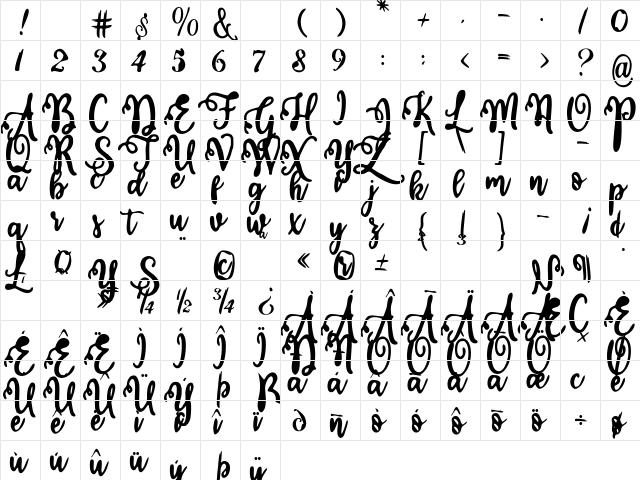 ! # $ % & ( ) * + , - . / 0
1 2 3 4 5 6 7 8 9 : ; < = > ? @
A B C D E F G H I J K L M N O P
Q R S T U V W X Y Z [ \ ] -
a b c d e f g h i j k l m n o p
q r s t u v w x y z { | } - ¡ ¢
£ ¤ ¥ § © « ® ± ¶
» ¼ ½ ¾ ¿ À Á Â Ã Ä Å Æ Ç È
É Ê Ë Ì Í Î Ï Ð Ñ Ò Ó Ô Õ Ö × Ø
Ù Ú Û Ü Ý þ ß à á â ã ä å æ ç è
é ê ë ì í î ï ð ñ ò ó ô õ ö ÷ ø
ù ú û ü ý þ ÿ